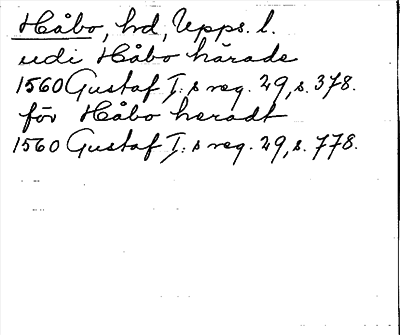 Håbo, hd, Upps. l.
udi Håbo härade
1560 Gustaf I:s reg. 29, s. 378.
för Håbo heradt
1560 Gustaf I:s reg. 29, s. 778.